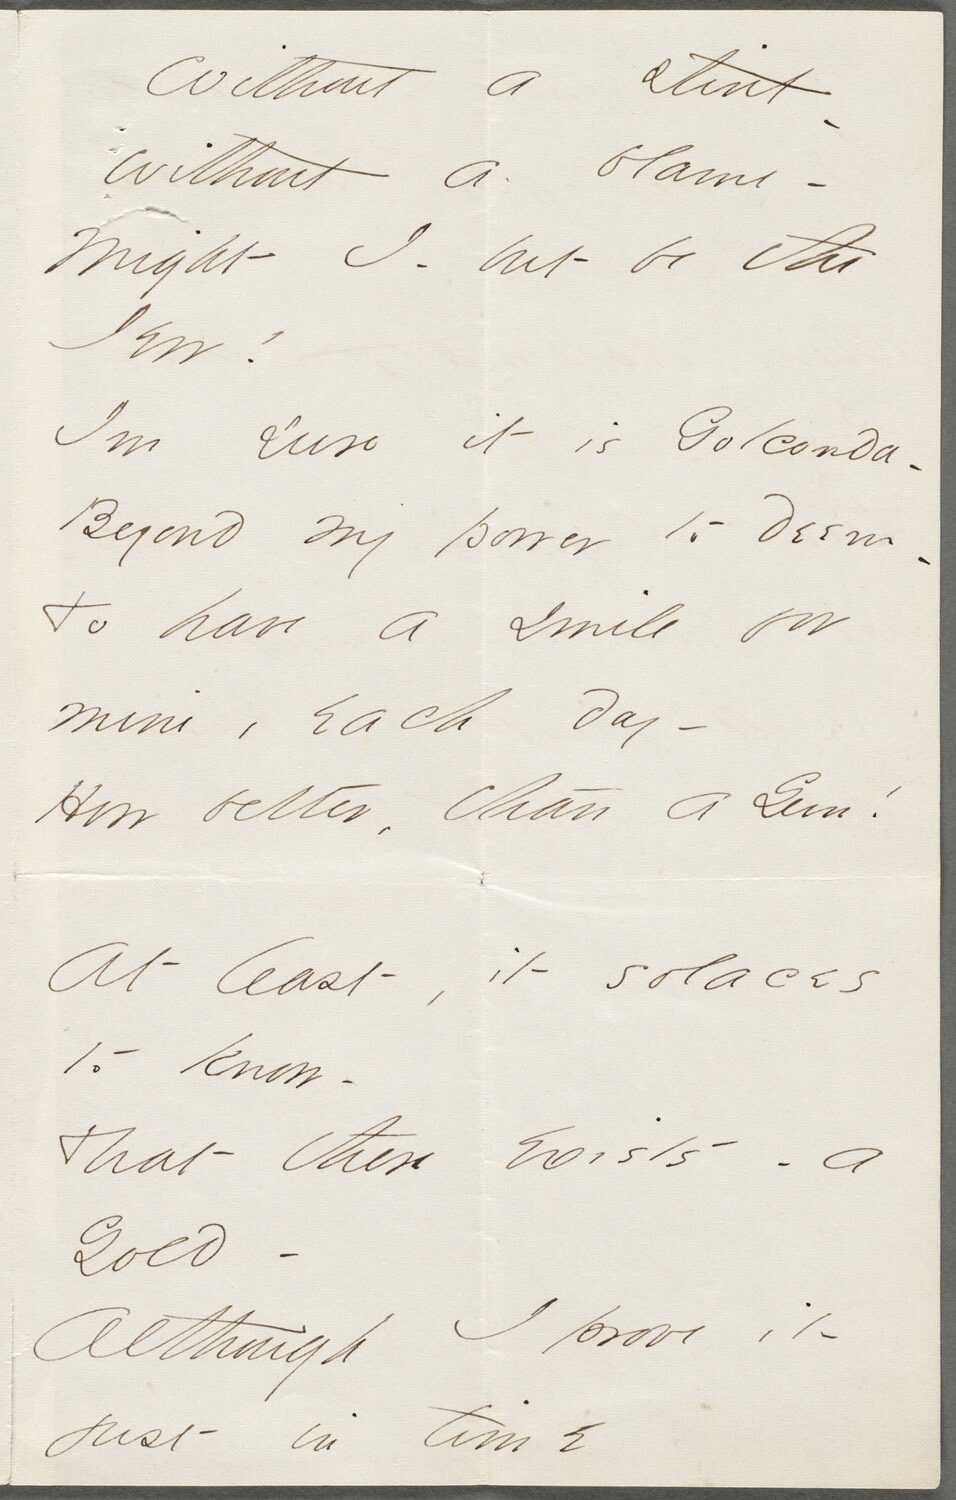 without a stint -
without a blame -
Might I - but be the
Jew!
I'm sure it is Golconda -
Beyond my power to deem -
To have a smile for
mine, each day -
How better, than a Gem!
At least, it solaces
to know -
That there exists - a
Gold -
Although I prove it
just in time